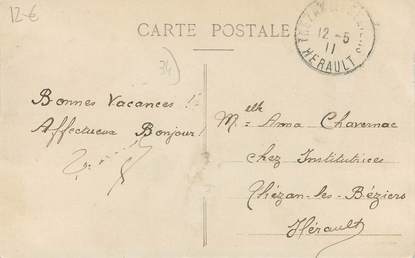 12-€
CARTE POSTALE
12-5
11
HERAULT
34
Bonnes Vacances !!
Affectueux Bonjour!
Melle Anna Chavernac
chez Institutrices
Thézan-les-Béziers
Hérault